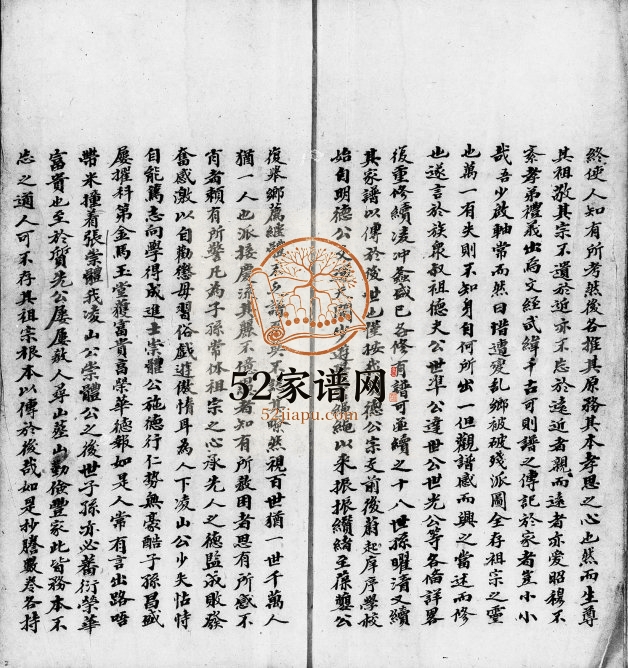 終使人知有所考然後各推其原務其本孝思之心也然而生尊
其祖敬其宗不遺於近亦不忘於遠近者親而遠者亦愛昭穆不
紊孝弟禮義出焉文經武緯千古可則譜之傳記於家者豈小小
哉吾少啟軸常而然曰堦遭變乱鄉被破殘派圖全存祖宗之靈
也萬一有失則不知身自何所出一但觀譜感而興之當述而修
也遂言於族泉叔祖德夫公世準公達世公世光公等各俻詳畧
後重修續凌冲益盛已各修有譜可並續之十八世孫曜滑又續
其家譜以傳於後世也僅按我明德公宗支前後蓊起庠序學校
始自明德公父 以來振振纘緒至葆龔公
復舉鄉薦継 其 然視百世猶一世千萬人
猶一人也派接農流其 不 者知有所教困者思有所感不
肖者頼有所警凡為子孫常休祖宗之心承先人之德監成敗發
奮感激以自勸懲毋習俗戲遊傲惰耳為人下凌山公少失怙恃
自能篤志向學得成進士崇體公施德行仁勢無豪酷子孫昌盛
屢擢科第金馬玉堂獲富貴富榮華德報如是人常有言出路唔
帶米撞着張崇體我凌山公崇體公之後世子孫亦必蕃衍榮華
富貴也至於賀先公屢屢教人尋山葬山勤儉豐家此皆務本不
忘之適人可不存其祖宗根本以傳於後哉如是抄謄數卷各持
52家谱网
52jiapu.com